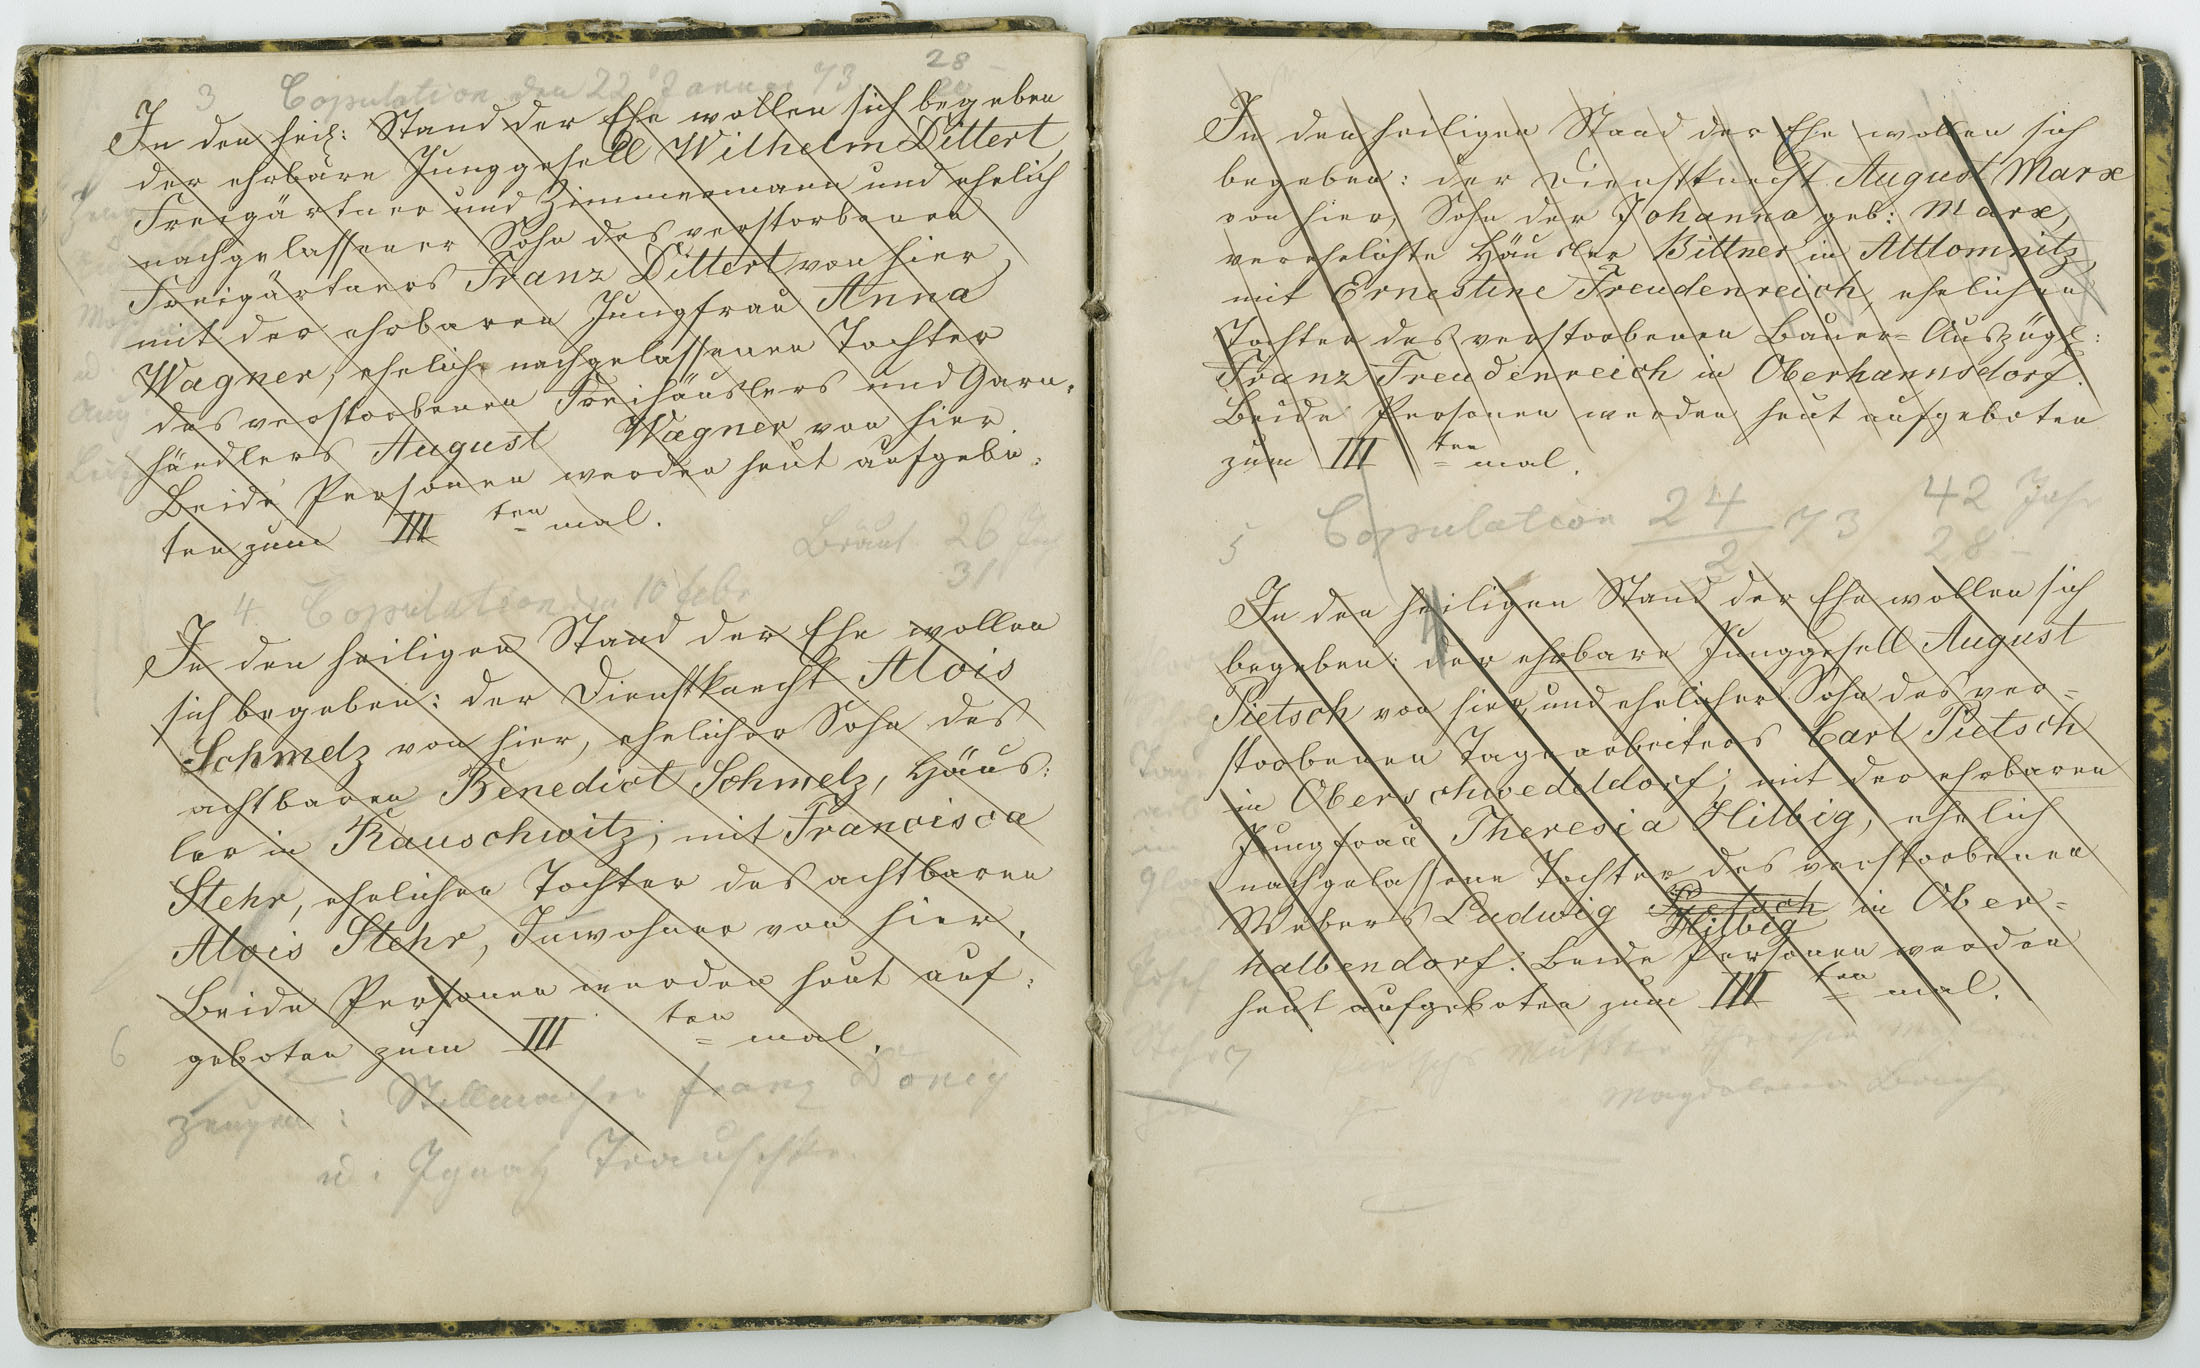 3 Copulation den 22 Januar 73 28
In den heil: Stand der Ehe wollen sich begeben
der ehrbare Junggesell Wilhelm Dittert,
Freigärtner und Zimmermann und ehelich
nachgelassener Sohn des verstorbenen
Freigärtners Franz Dittert von hier,
mit der ehrbaren Jungfrau Anna
Wagner, ehelich nachgelassenen Tochter
des verstorbenen Freihäuslers und Garn-
händlers August Wagner von hier.
Beide Personen werden heut aufgebo-
ten zum III ten mal.
Braut 26 Jah
31
4. Copulation den 10 Febr
In den heiligen Stand der Ehe wollen
sich begeben: der Dienstknecht Alois
Schmelz von hier, ehelicher Sohn des
achtbaren Benedict Schmelz, Häus-
ler in Rauschwitz; mit Francisca
Stehr, ehelichen Tochter des achtbaren
Alois Stehr, Inwohner von hier.
Beide Personen werden heut auf-
geboten zum III ten mal.
6
Zeugen: Stellmacher Franz Doney
u. Ignatz
In den heiligen Stand der Ehe wollen sich
begeben: der Dienstknecht August Marx
von hier, Sohn der Johanna geb: Marx,
verehelichte Häusler Bittner in Altlomnitz,
mit Ernestine Freudenreich, ehelichen
Tochter des verstorbenen Bauer-Auszügl:
Franz Freudenreich in Oberhannsdorf.
Beide Personen werden heut aufgeboten
zum III ten mal.
5 Copulation 24/2 73 42 Jahr
28 –
In den heiligen Stand der Ehe wollen sich
begeben: der ehrbare Junggesell August
Pietsch von hier, und ehelicher Sohn des ver-
storbenen Tagearbeiters Carl Pietsch
in Oberschwedeldorf; mit der ehrbaren
Jungfrau Theresia Hilbig, ehelich
nachgelassene Tochter des verstorbenen
Webers Ludwig Pietsch Hilbig in Ober-
halbendorf. Beide Personen werden
heut aufgeboten zum III ten mal.
Mutter
Magdalena